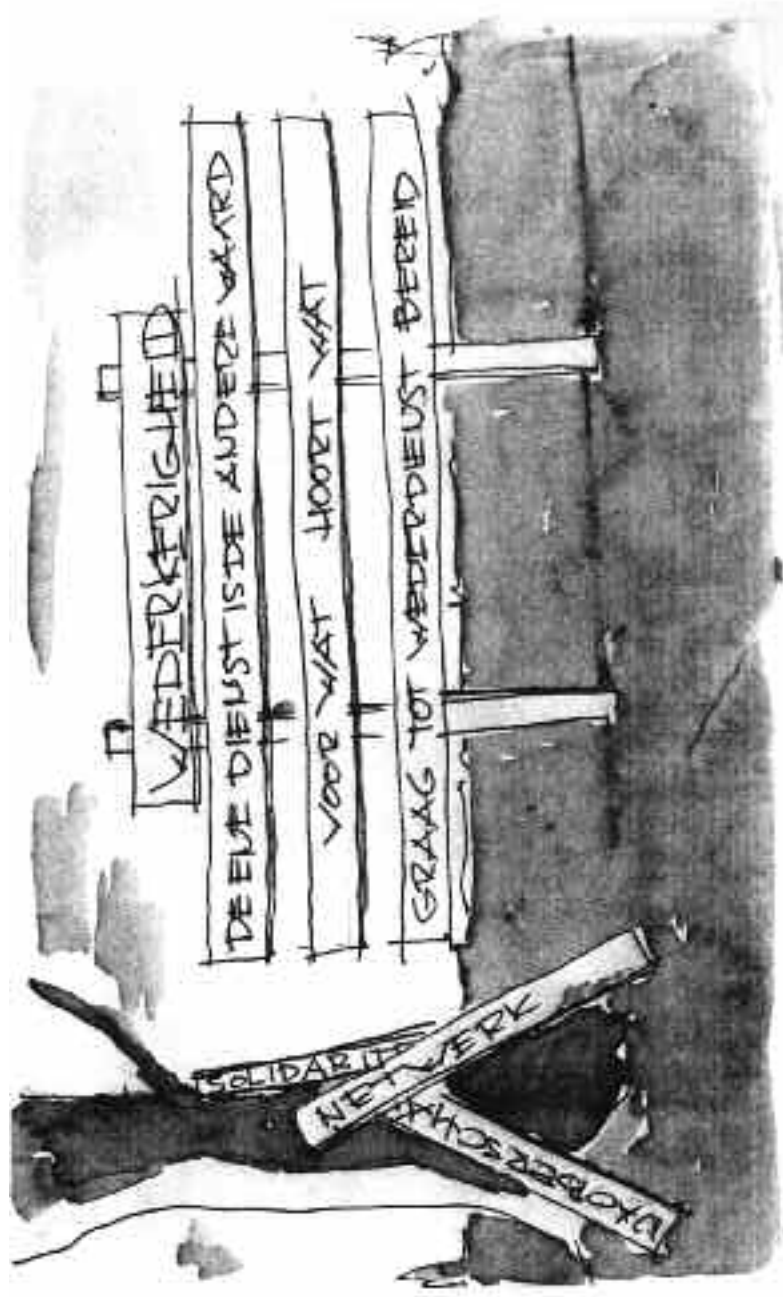 WEDERKERIGHEID
DE ENE DIENST IS DE ANDERE WAARD
VOOR WAT HOORT WAT
GRAAG TOT WEDERDIENST BEREID
SOLIDARIT
NETWERK